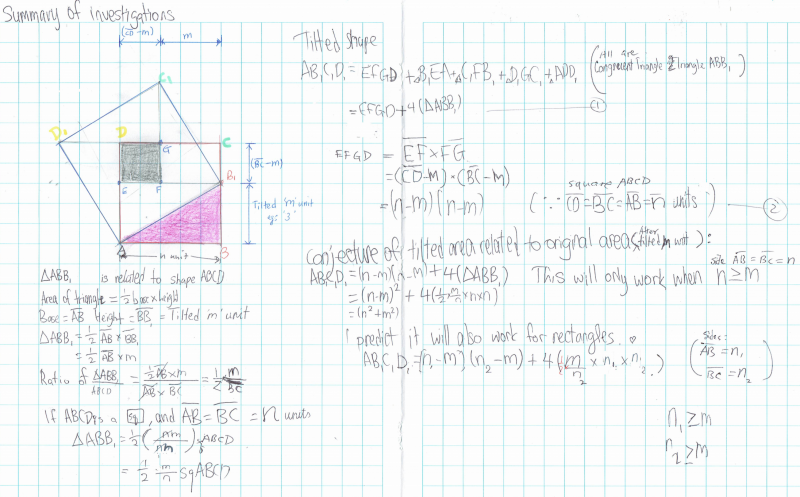 Summary of investigations
(CD-m) m
C₁
D₁ D C
G
(BC-m)
E F B₁
Tilted 'm' unit
eg: '3'
A n unit B
△ABB₁ is related to shape ABCD
Area of triangle = 1/2 base x height
Base = AB Height = BB₁ = Tilted 'm' unit
△ABB₁ = 1/2 AB x BB₁
= 1/2 AB x m
Ratio of △ABB₁/ABCD = (1/2 AB x m)/(AB x BC) = 1/2 m/BC
If ABCD is a sq, and AB = BC = n units
△ABB₁ = 1/2 (nm/nn) x ABCD
= 1/2 m/n sq ABCD
Tilted shape
AB₁C₁D₁ = EFGD + △B₁EA + △C₁FB₁ + △D₁GC₁ + △ADD₁ (All are Congruent Triangle 2 Triangle ABB₁)
= EFGD + 4(△ABB₁) ①
EFGD = EF x FG
= (CD-m) x (BC-m)
= (n-m)(n-m) (∵ square ABCD CD = BC = AB = n units) ②
Conjecture of tilted area related to original area (After tilted m unit):
AB₁C₁D₁ = (n-m)(n-m) + 4(△ABB₁) This will only work when side AB = BC = n
n ≥ m
= (n-m)² + 4(1/2 m/n x n x n)
= (n² + m²)
I predict it will also work for rectangles.
AB₁C₁D₁ = (n₁-m)(n₂-m) + 4(1/2 m/n₂ x n₁ x n₂) (Side: AB = n₁
BC = n₂)
n₁ ≥ m
n₂ ≥ m